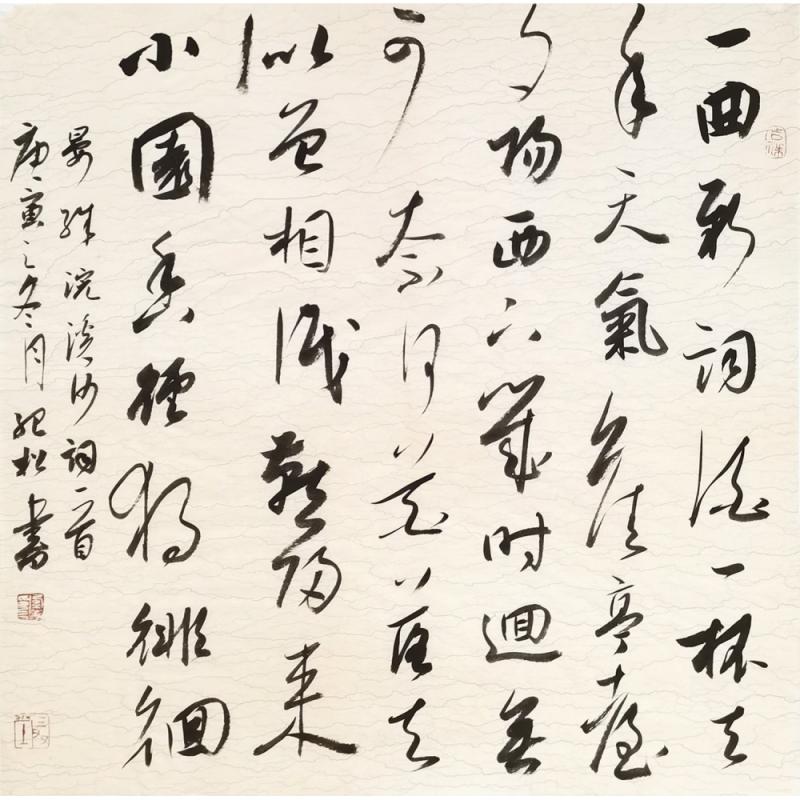 一曲新詞酒一杯去
年天氣舊亭臺
夕陽西下幾時迴無
可奈何花落去
似曾相識燕歸來
小園香徑獨徘徊
晏殊浣溪沙詞一首
庚寅之冬月 松書